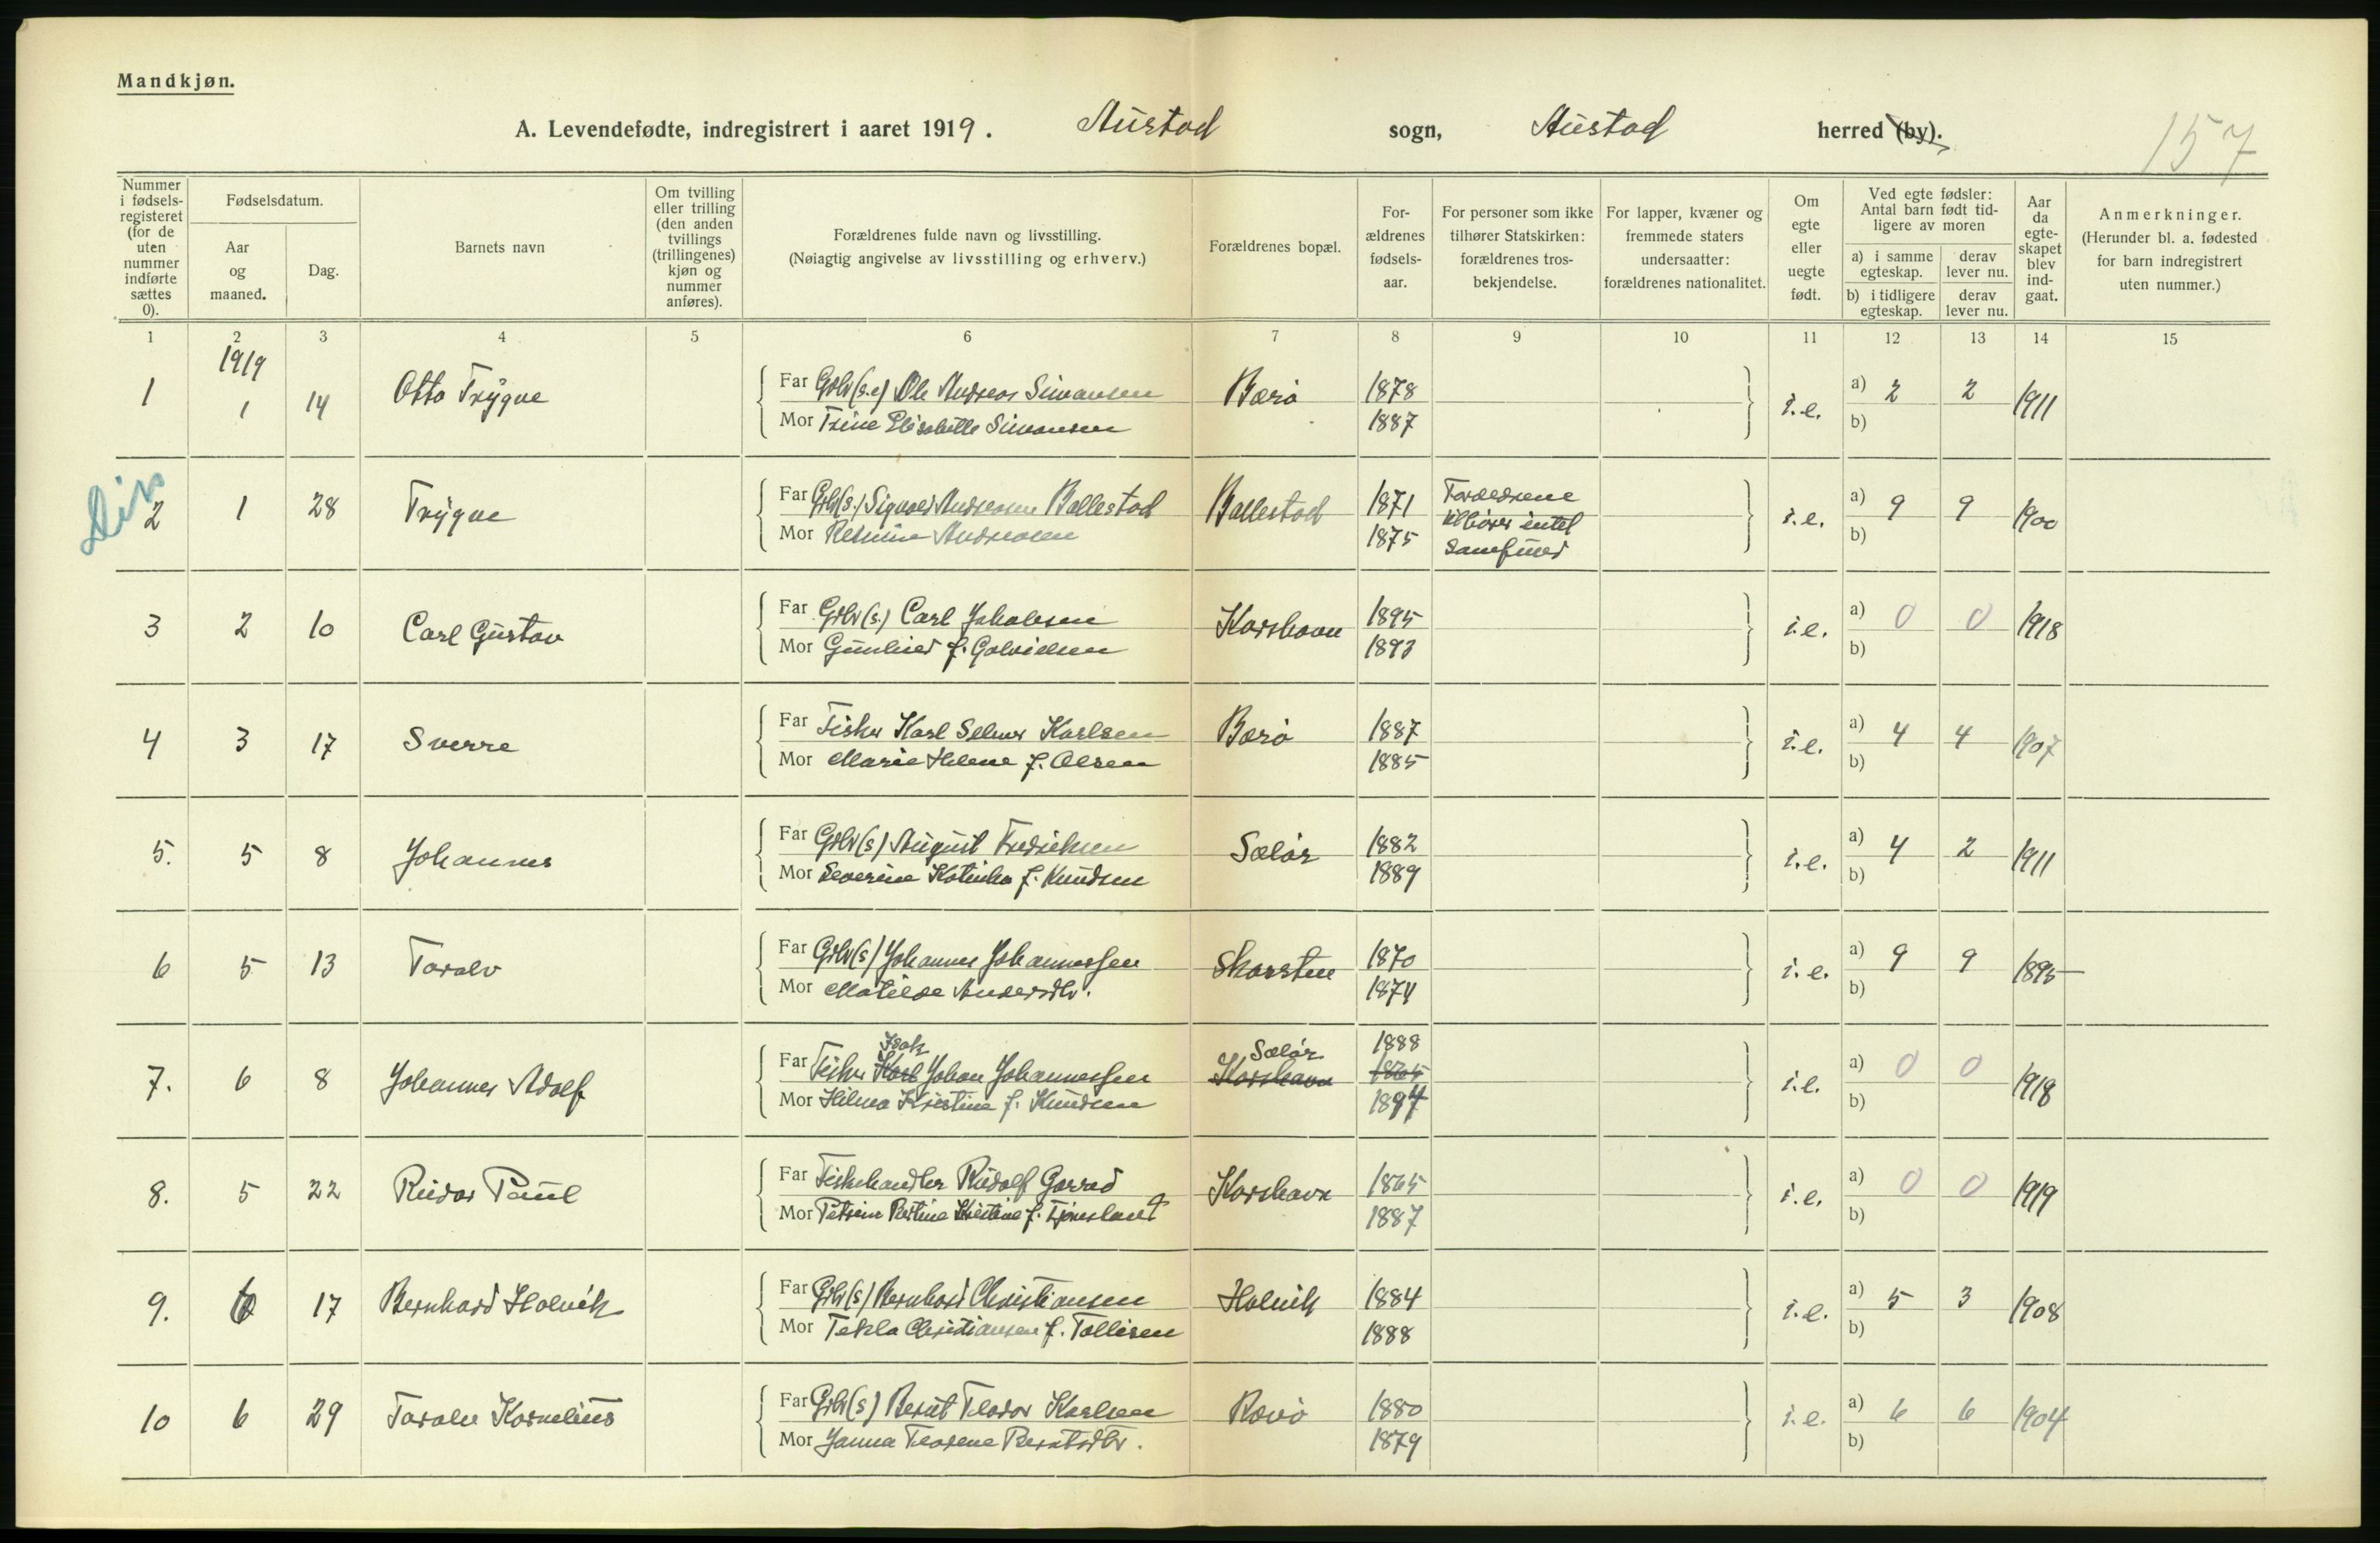 Mandkjøn.
A. Levendefødte, indregistrert i aaret 1919. Austad sogn, Austad herred (by).
157
Nummer i fødsels-registeret (for de uten nummer indførte sættes 0).
Fødselsdatum.
Aar og maaned.
Dag.
Barnets navn
Om tvilling eller trilling (den anden tvillings (trillingenes) kjøn og nummer anføres).
Forældrenes fulde navn og livsstilling.
(Nøiagtig angivelse av livsstilling og erhverv.)
Forældrenes bopæl.
For-ældrenes fødsels-aar.
For personer som ikke tilhører Statskirken: forældrenes tros-bekjendelse.
For lapper, kvæner og fremmede staters undersaatter: forældrenes nationalitet.
Om egte eller uegte født.
Ved egte fødsler: Antal barn født tid-ligere av moren
a) i samme egteskap. derav lever nu.
b) i tidligere egteskap. derav lever nu.
Aar da egte-skapet blev ind-gaat.
Anmerkninger.
(Herunder bl. a. fødested for barn indregistrert uten nummer.)
1 2 3 4 5 6 7 8 9 10 11 12 13 14 15
1919
1 1 14 Otto Trygve Far Grbr (s.e) Ole Andreas Simonsen Bærø 1878 i.e. a) 2 2 1911
Mor Trine Elisabette Simonsen 1887 b)
2 1 28 Trygve Far Grbr(s.) Sigvald Andreasen Ballestad Ballestad 1871 Forældrene tilhører intet samfund i.e. a) 9 9 1900
Mor Andreasen 1875 b)
3 2 10 Carl Gustav Far Grbr (s.) Carl Jakobsen Korshavn 1895 i.e. a) 0 0 1918
Mor Gunhild f. 1893 b)
4 3 17 Sverre Far Fisker Karl Selmer Karlsen Bærø 1887 i.e. a) 4 4 1907
Mor Marie Helene f. Olsen 1885 b)
5. 5 8 Johannes Far Grbr (s) August Fredriksen Sælør 1882 i.e. a) 4 2 1911
Mor Severine Katinka f. Knudsen 1889 b)
6 5 13 Taralv Far Grbr (s) Johannes Johannessen Skarsten 1870 i.e. a) 9 9 1895
Mor Matilde Andersdtr. 1874 b)
7. 6 8 Johannes Adolf Far Fisker Karl Isak Johan Johannessen Korshavn Sælør 1865 1888 i.e. a) 0 0 1918
Mor Hilma Kristine f. Knudsen 1894 b)
8. 5 22 Reidar Paul Far Fiskehandler Rudolf Korshavn 1865 i.e. a) 0 0 1919
Mor Kristine f. 1887 b)
9. 6 17 Bernhard Holvik Far Grbr (s) Bernhard Christiansen Holvik 1884 i.e. a) 5 3 1908
Mor Tekla Christiansen f. Tollisen 1888 b)
10 6 29 Taralv Kornelius Far Grbr (s) Bernt Teodor Karlsen Rævø 1880 i.e. a) 6 6 1904
Mor Janna Teodene Berntsdtr. 1879 b)